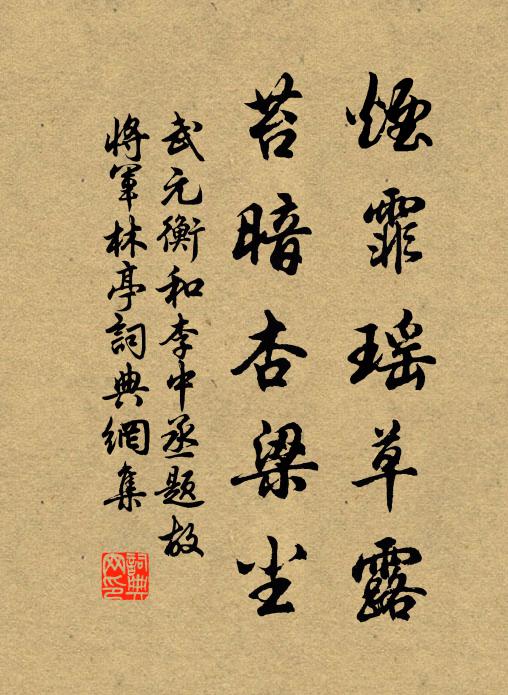 煙霏瑶草露
苔暗杏梁尘
武元衡和李中丞題故
將軍林亭詞典網集
詞典网印